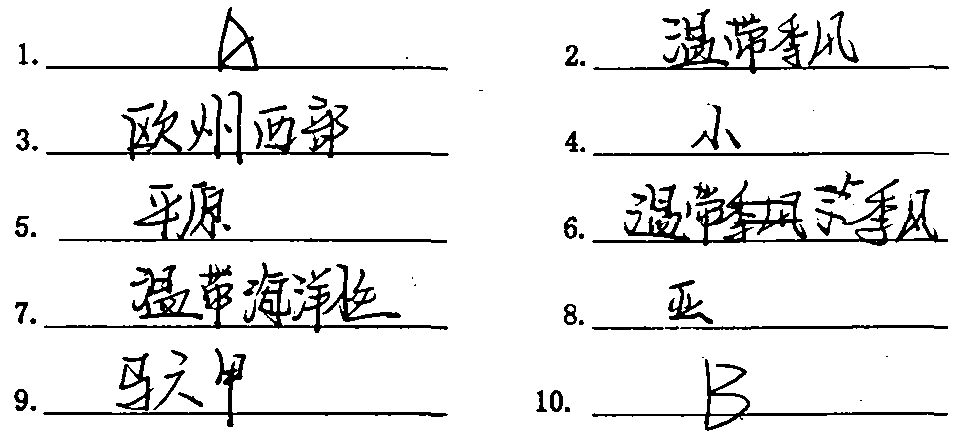 1. A 2. 温带季风
3. 欧州西部 4. 小
5. 平原 6. 温带季风
7. 温带海洋性 8. 亚
9. 马六甲 10. B